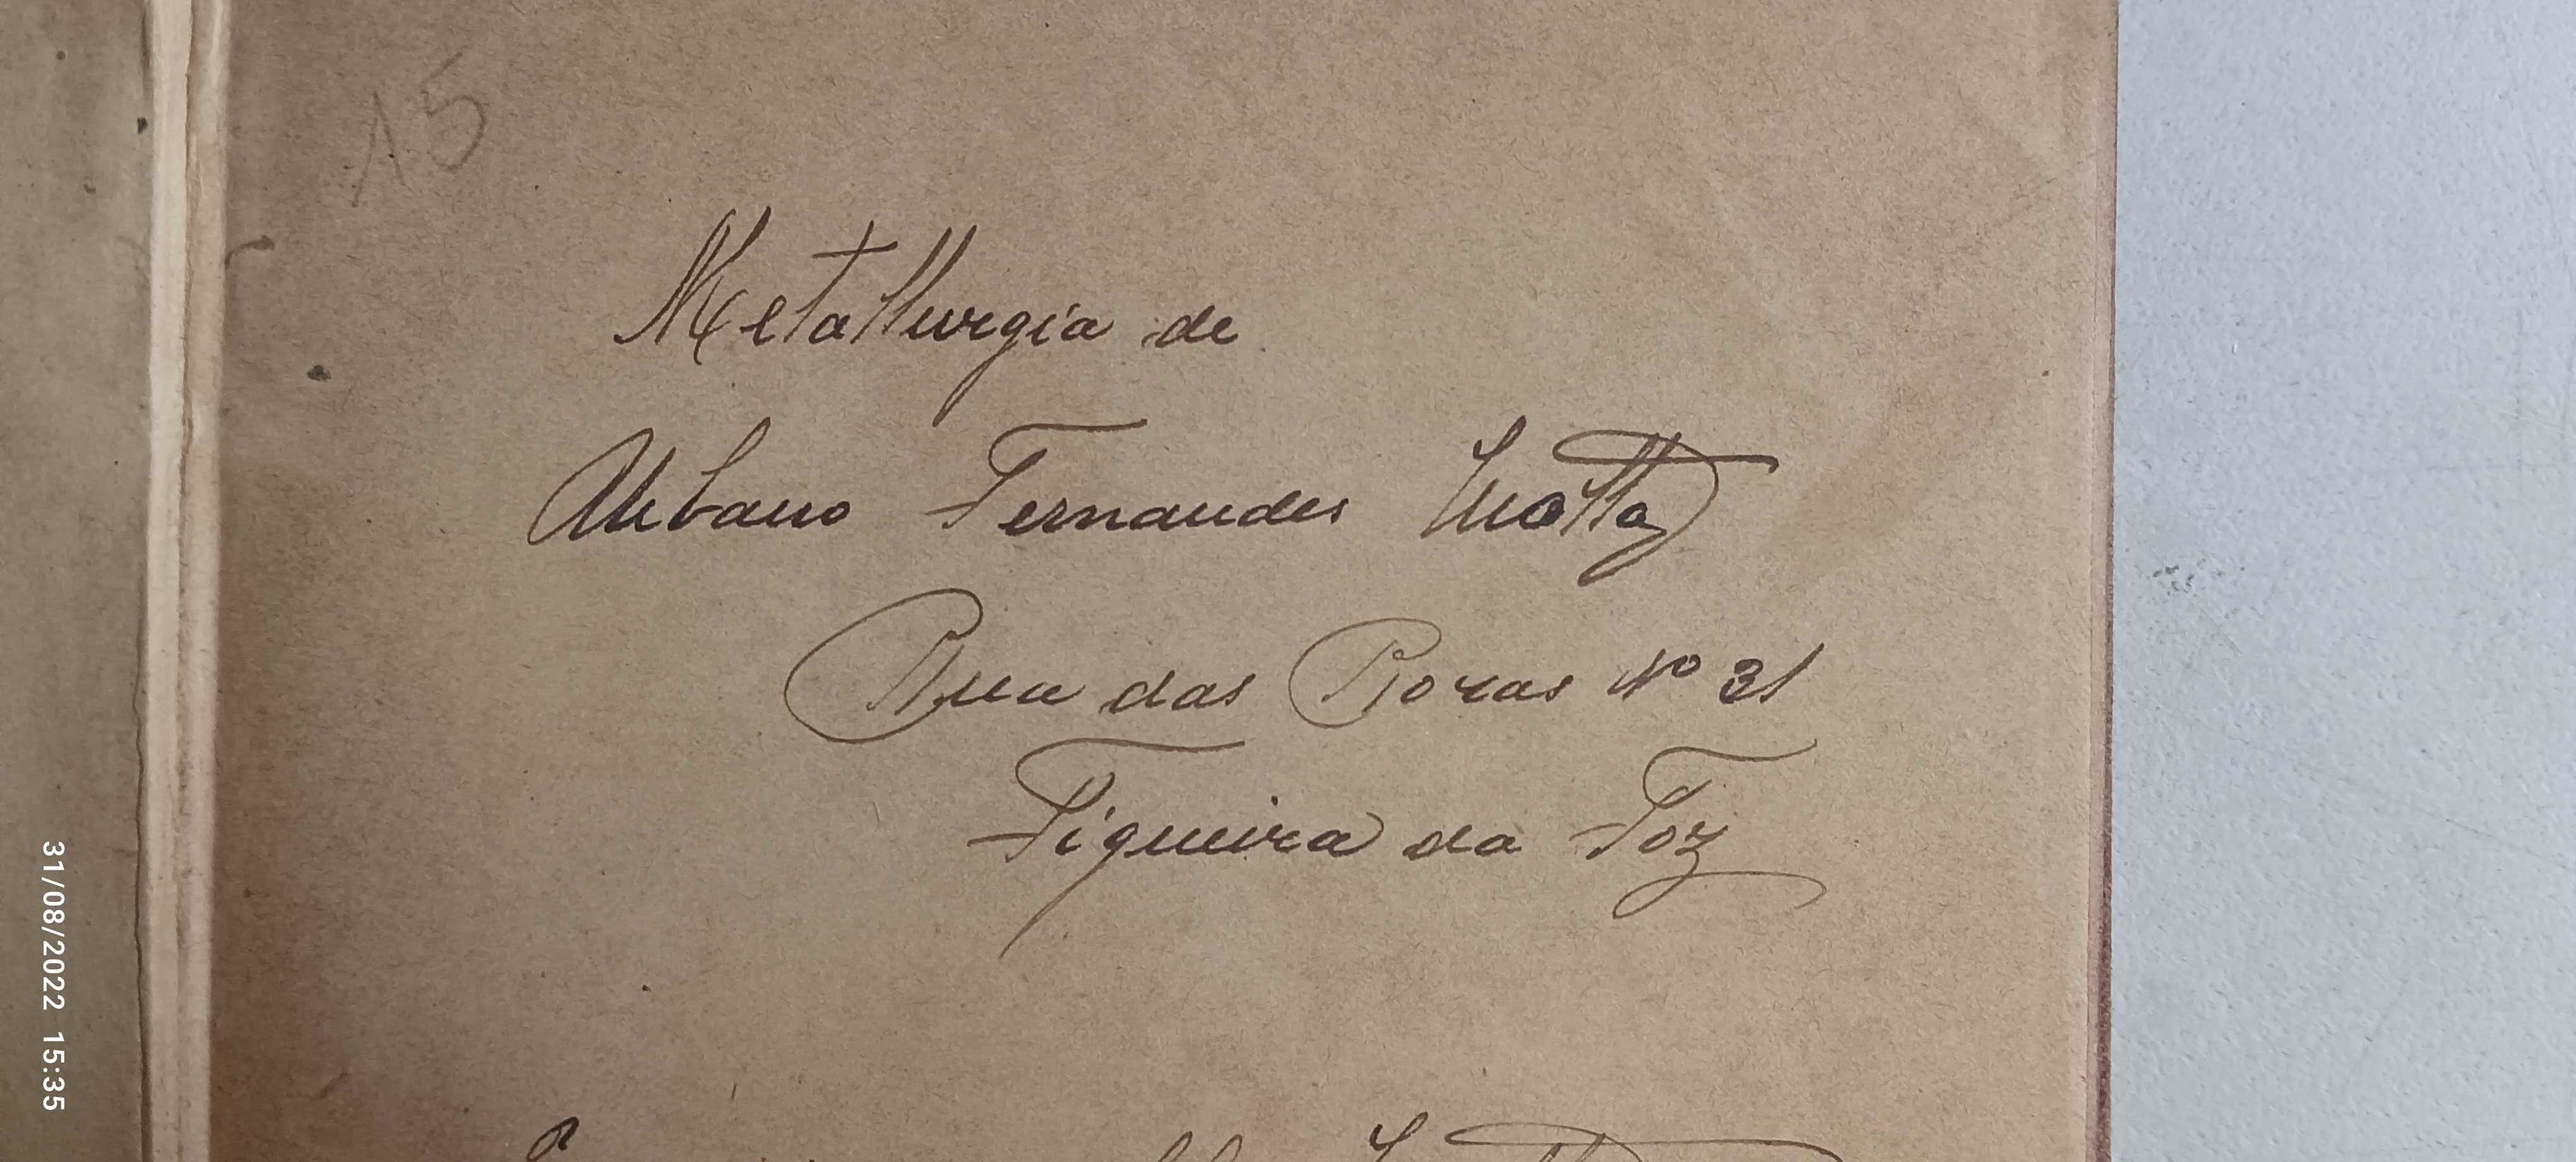 15
Metallurgia de
Urbano Fernandes Motta
Rua das Rozas Nº 31
Figueira da Foz
31/08/2022 15:35